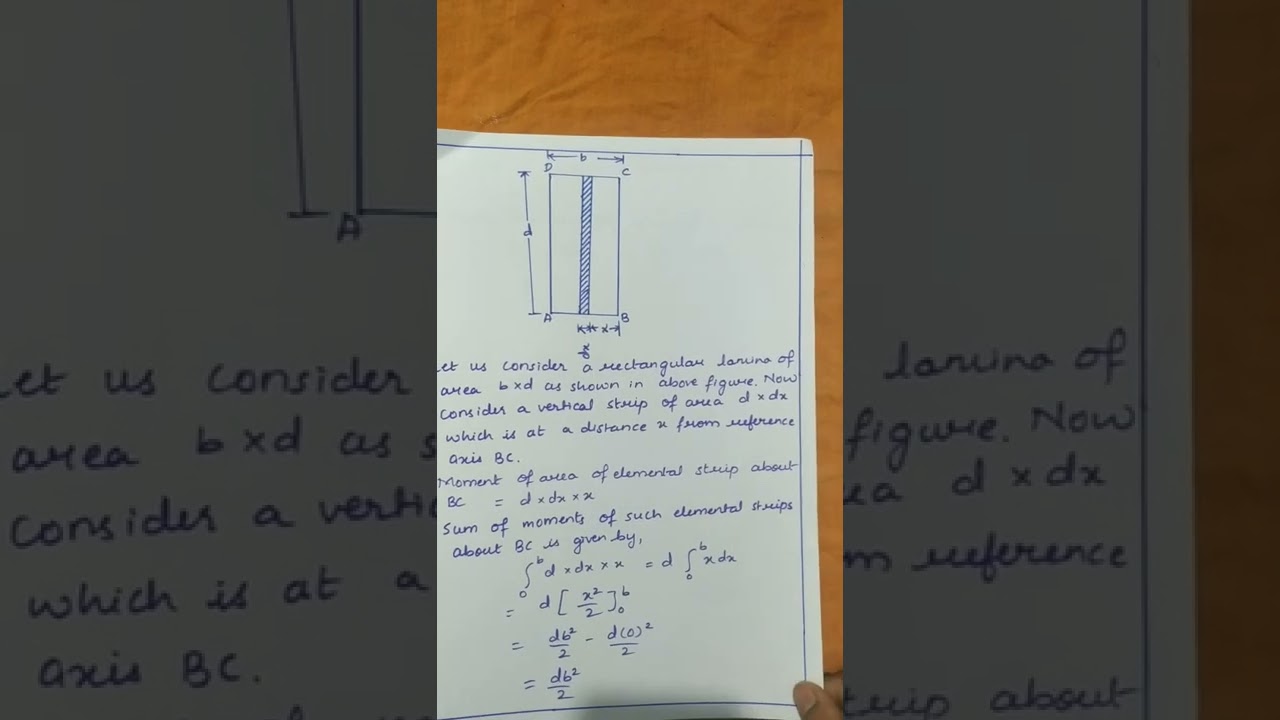 b
D
C
d
A
B
x
dx
Let us consider a rectangular lamina of
area b×d as shown in above figure. Now
consider a vertical strip of area d×dx
which is at a distance x from reference
axis BC.
Moment of area of elemental strip about
BC = d×dx×x
Sum of moments of such elemental strips
about BC is given by,
∫₀ᵇ d×dx×x = d ∫₀ᵇ x dx
= d [x²/2]₀ᵇ
= db²/2 - d(0)²/2
= db²/2